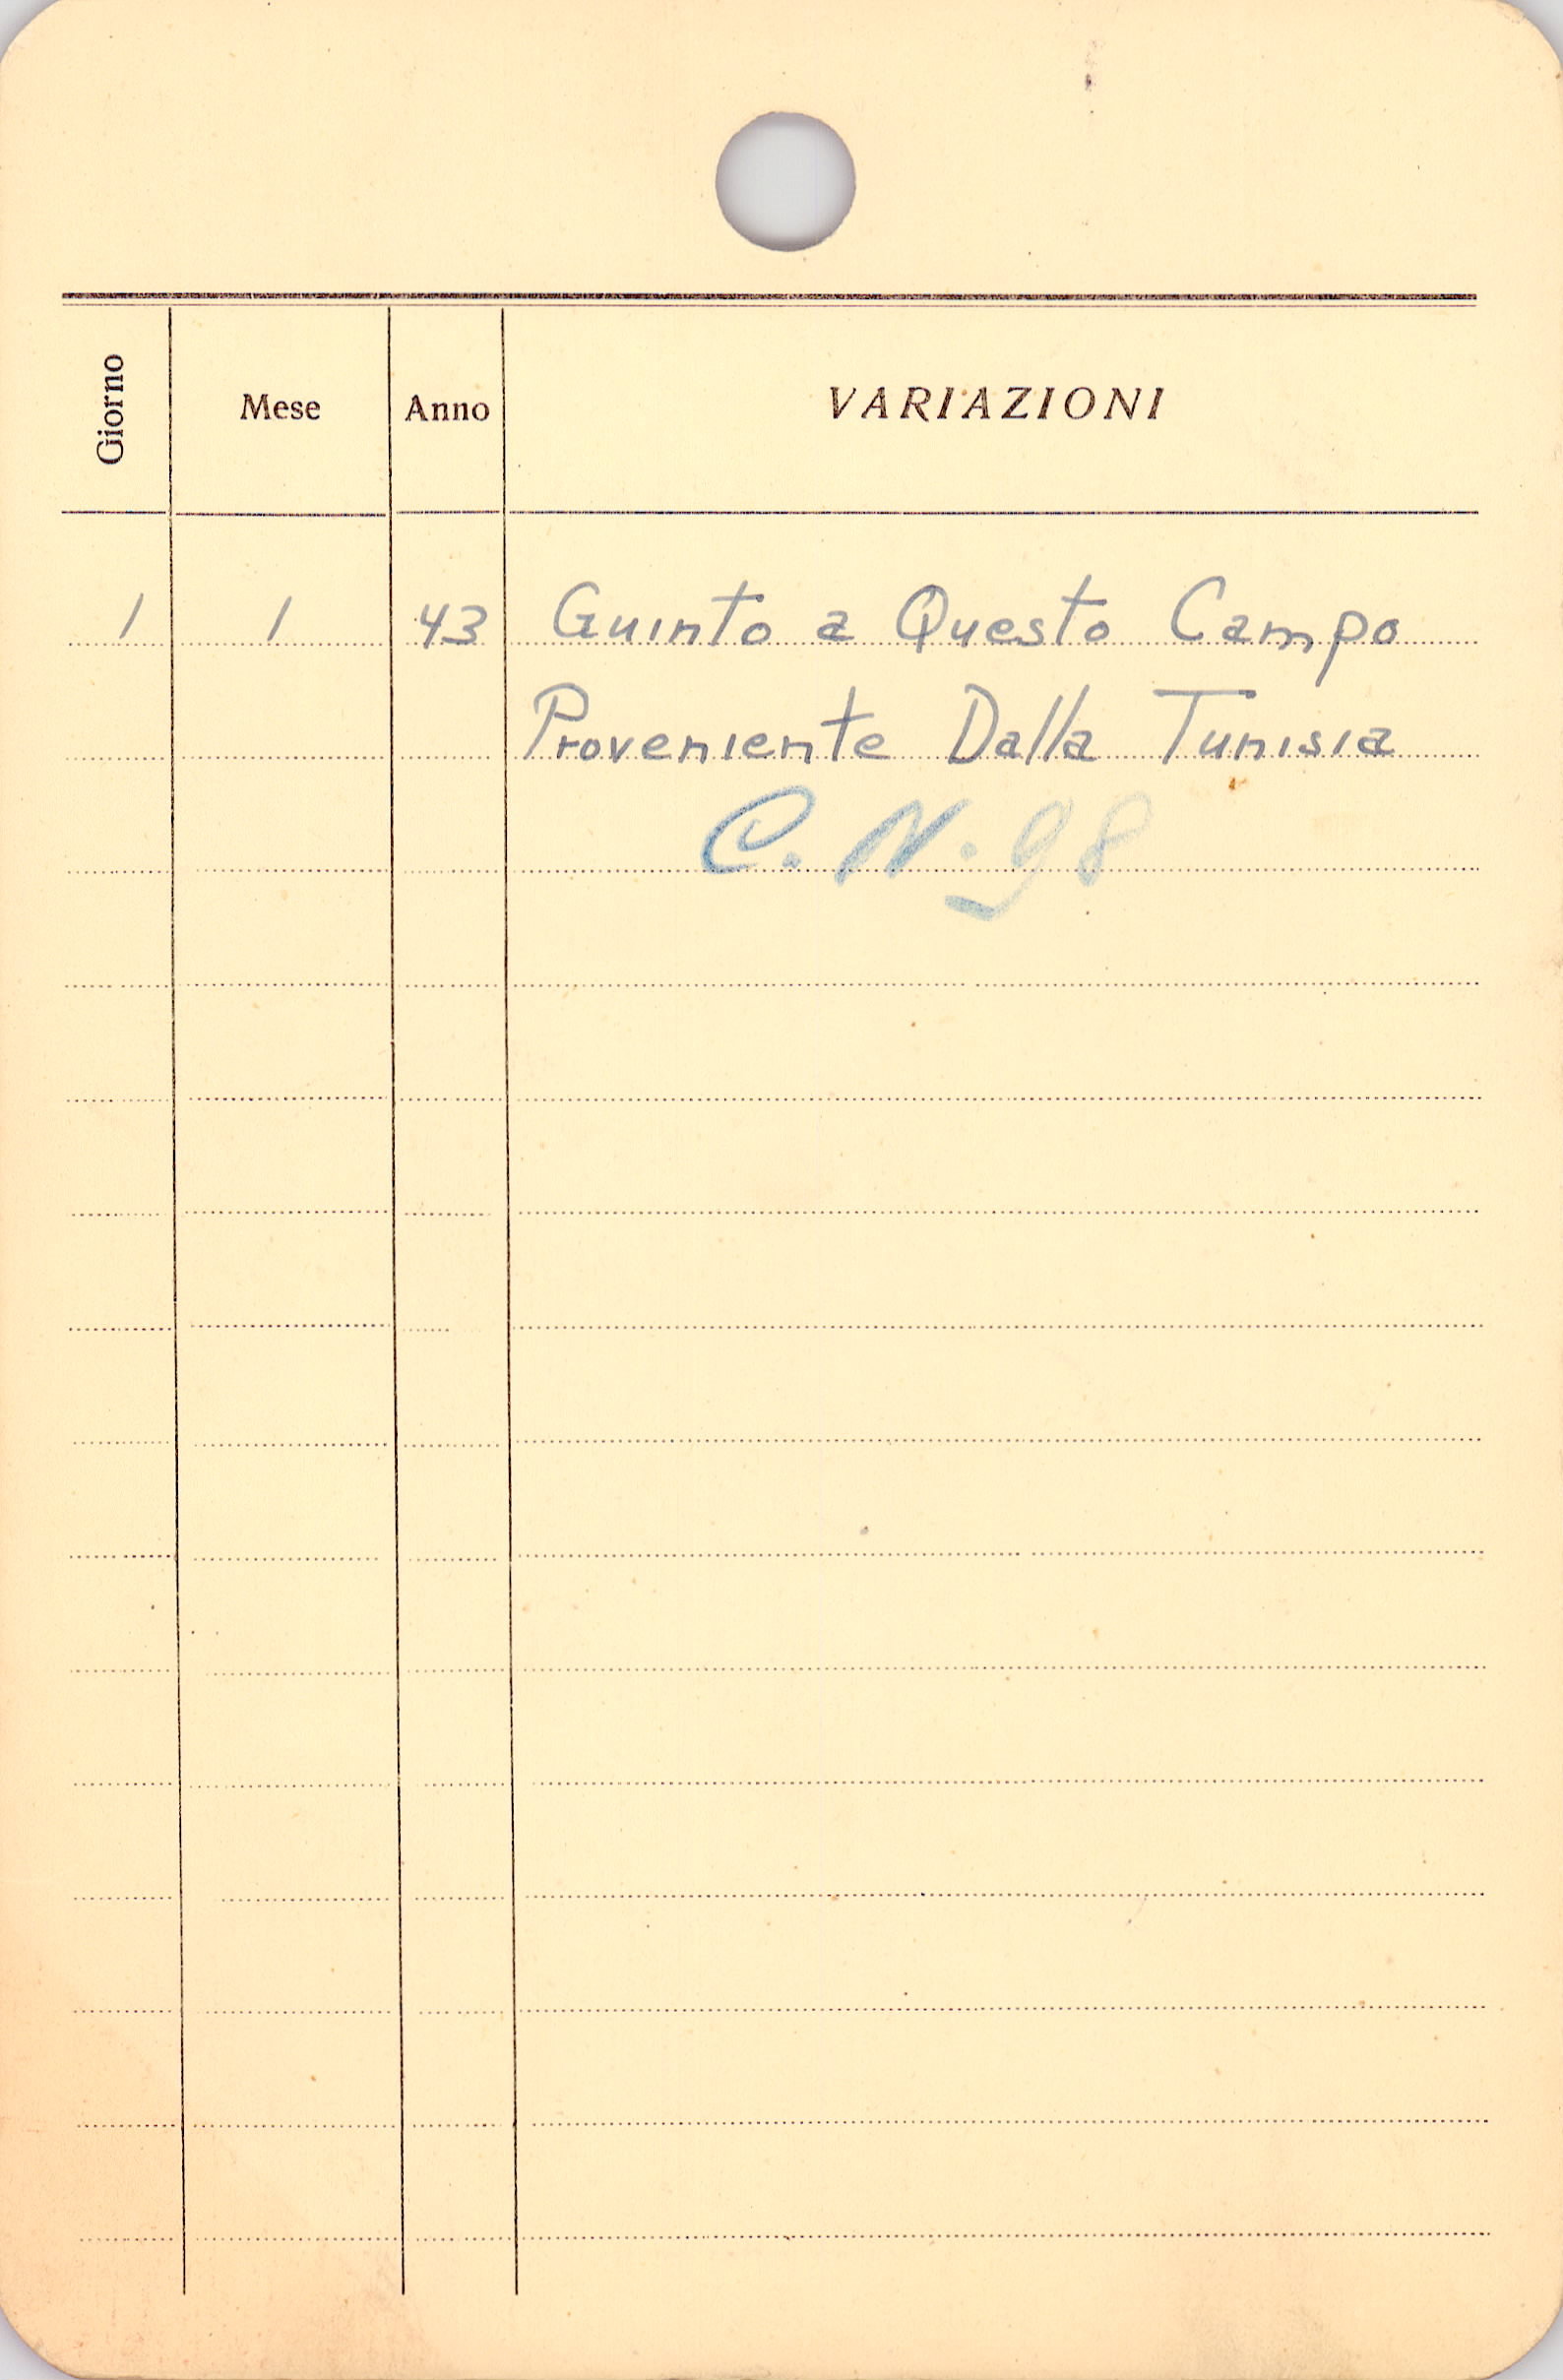 Giorno Mese Anno VARIAZIONI
1 1 43 Guinto a Questo Campo
Proveniente Dalla Tunisia
C. N. 98